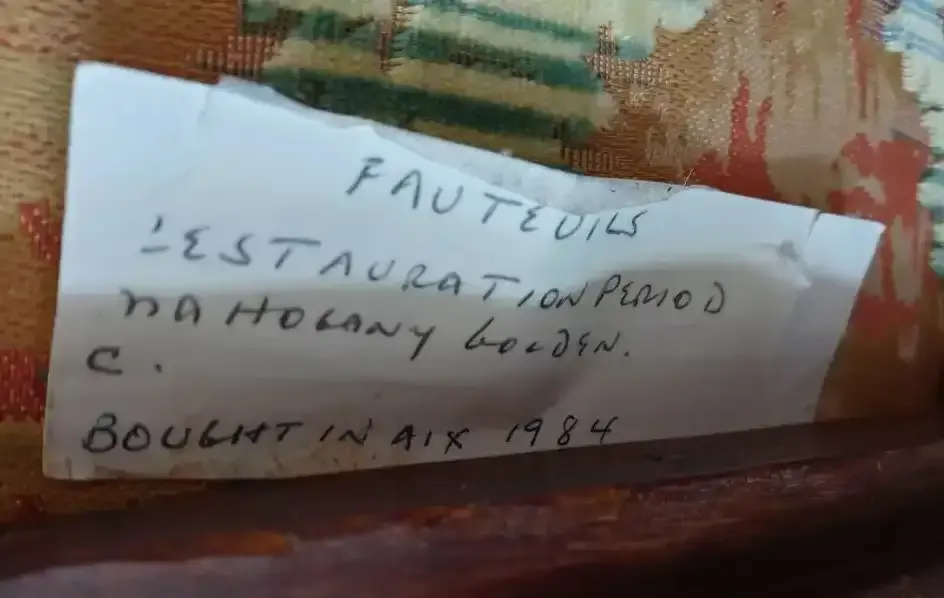 FAUTEUILS
RESTAURATION PERIOD
MAHOGANY GOLDEN.
C.
BOUGHT IN AIX 1984